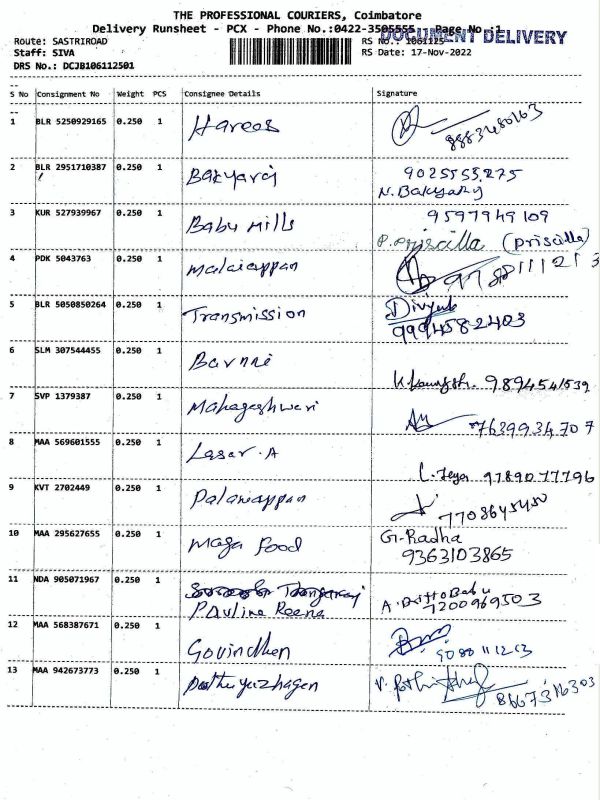 THE PROFESSIONAL COURIERS, Coimbatore
Delivery Runsheet - PCX - Phone No.:0422-3505555 Page No :1
DOCUMENT DELIVERY
Route: SASTRIROAD RS No.: 1061125
Staff: SIVA RS Date: 17-Nov-2022
DRS No.: DCJB106112501
S No Consignment No Weight PCS Consignee Details Signature
1 BLR 5250929165 0.250 1 Harees
2 BLR 2951710387 0.250 1 Bakyaraj 9025553275
N. Bakyaraj
3 KUR 527939967 0.250 1 Babu Mills 9597949109
P. Priscilla (Priscilla)
4 PDK 5043763 0.250 1 Malaiappan
5 BLR 5050850264 0.250 1 Transmission Divya
9994582403
6 SLM 307544455 0.250 1 9894541539
7 SVP 1379387 0.250 1 Mahageshweri 7639934707
8 MAA 569601555 0.250 1 Lasar.A L. Jeya 9789077796
9 KVT 2702449 0.250 1 Palaniappan 7708645450
10 MAA 295627655 0.250 1 Maga Food G. Radha
9363103865
11 NDA 905071967 0.250 1 Thangaraj
Pauline Reena A. Ditto Babu
7200969503
12 MAA 568387671 0.250 1 Govindhen
13 MAA 942673773 0.250 1